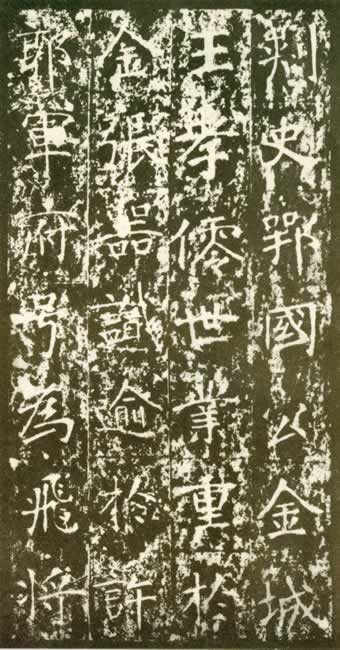 刺史鄂國公金城
王孝世業重於
金張器識逾於許
郭軍府号為飛將